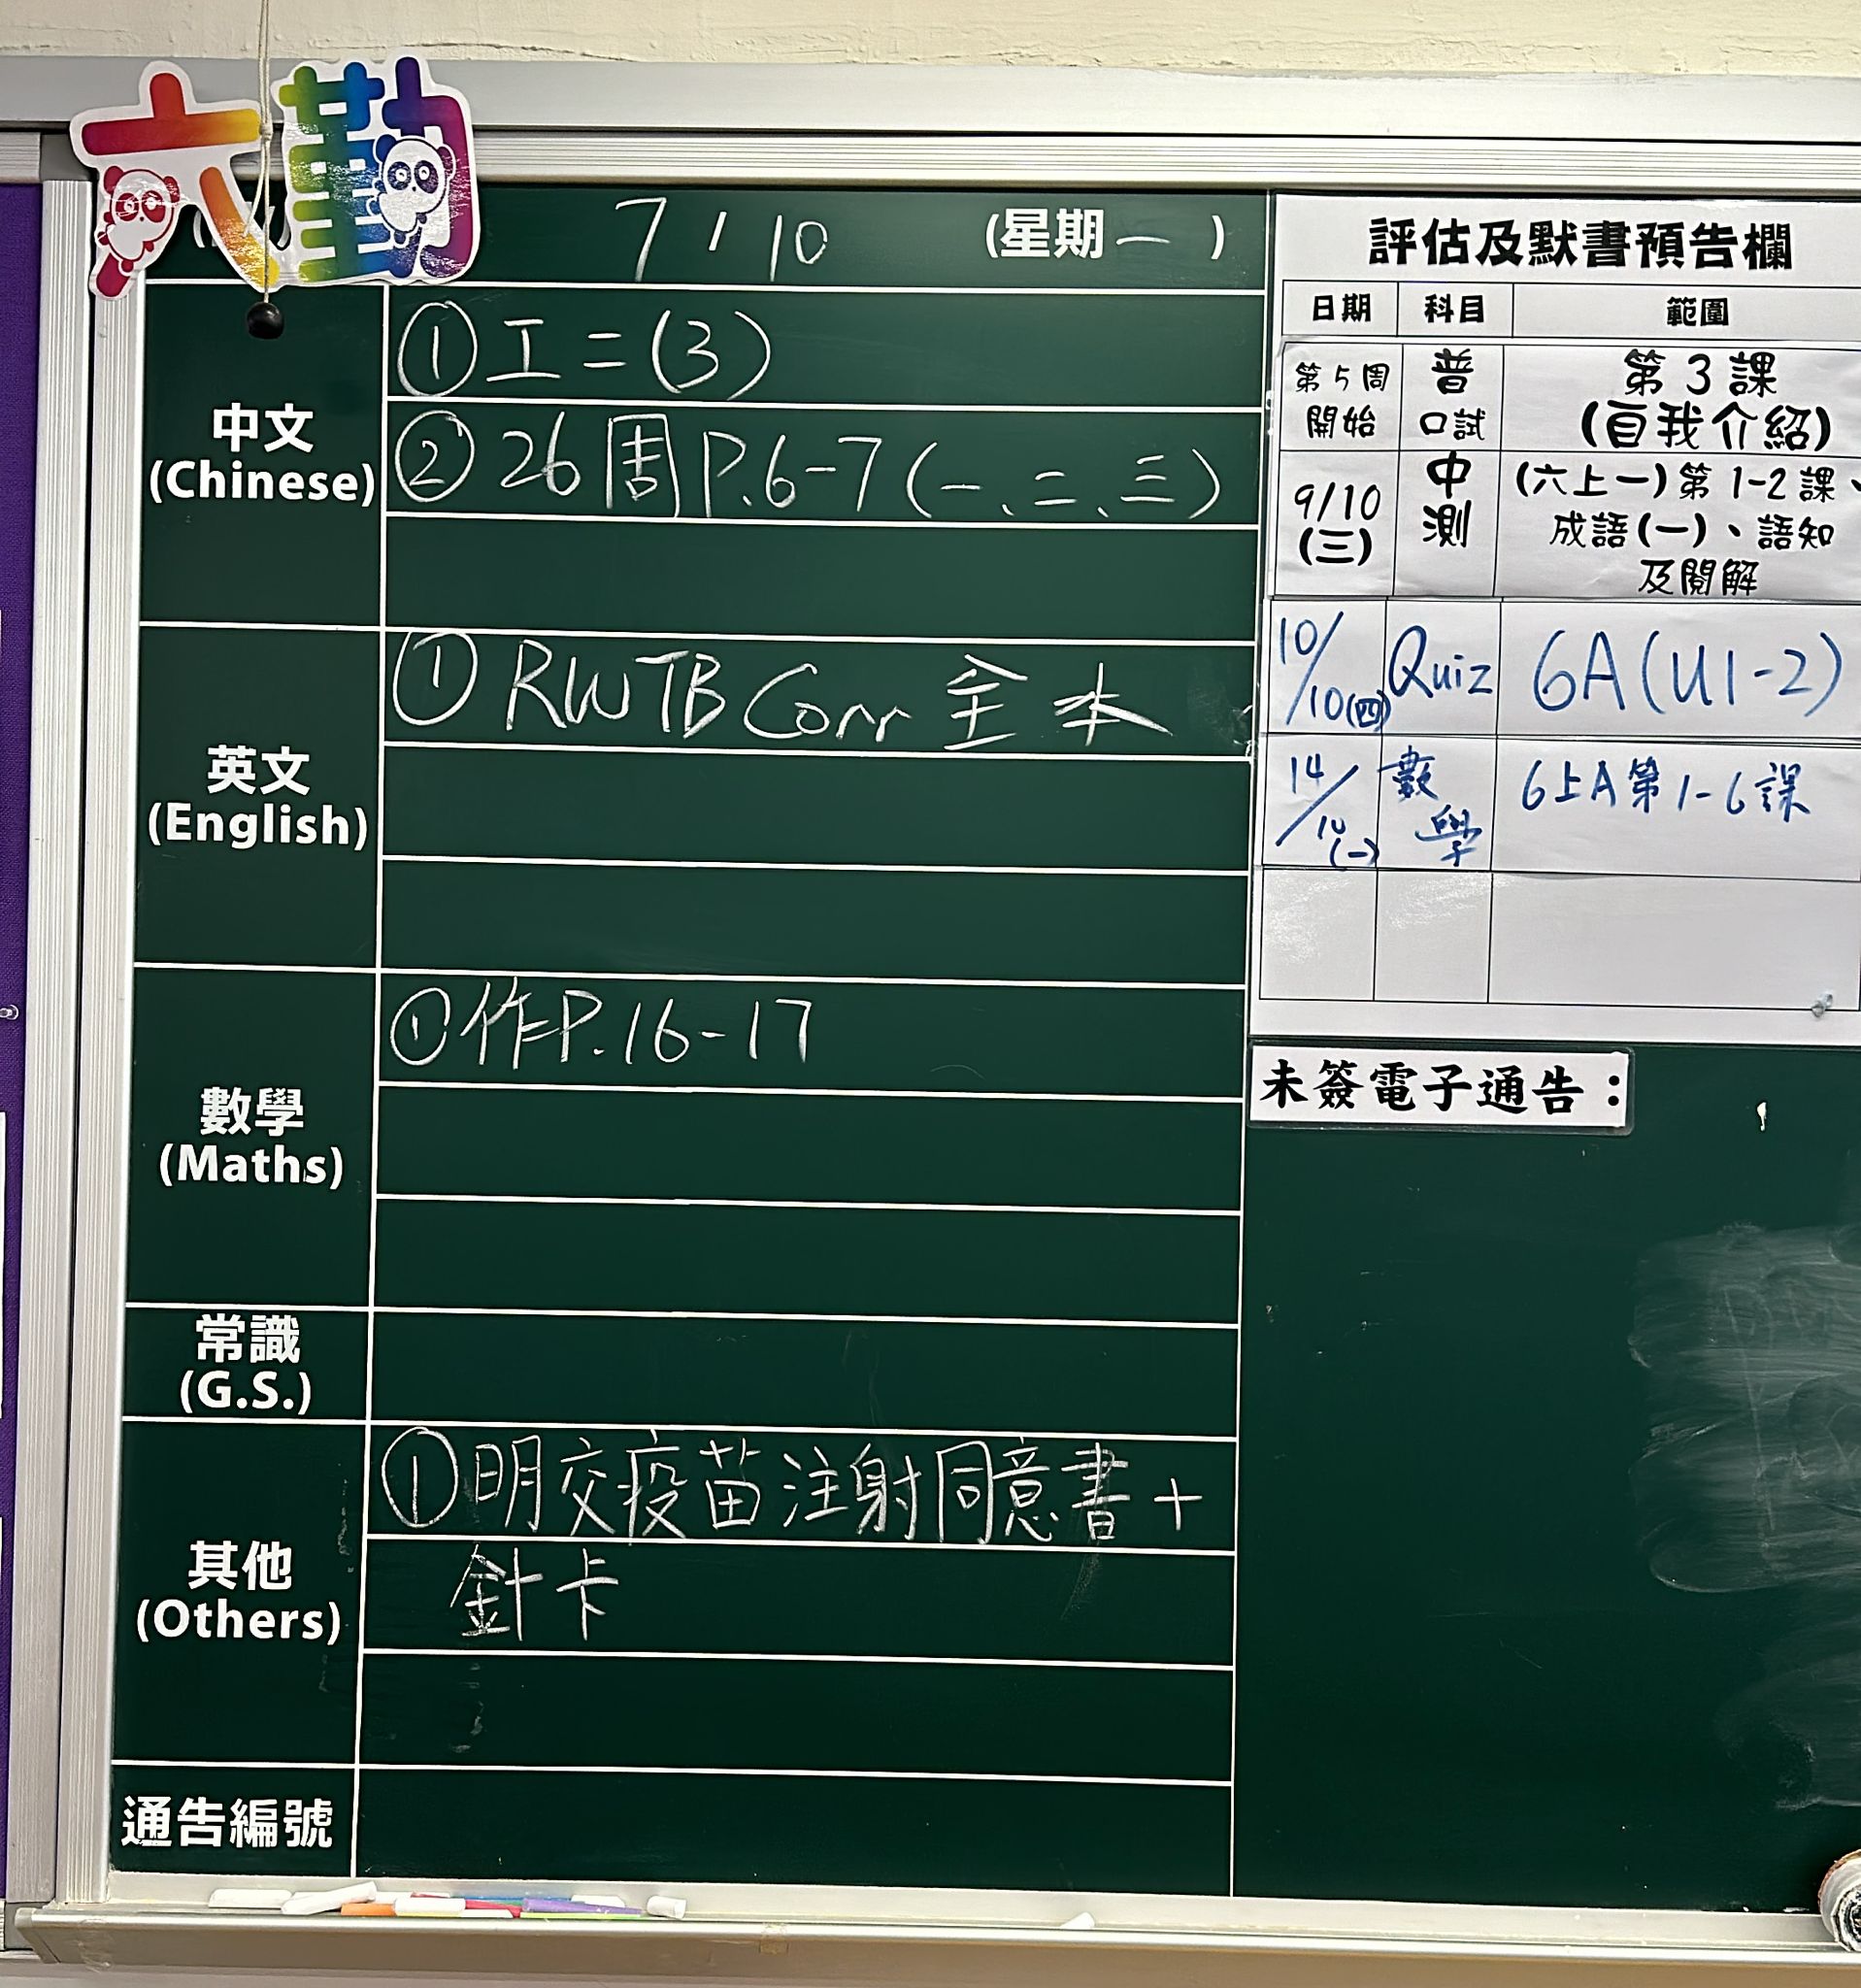 六勤
7 / 10 (星期一)
中文
(Chinese)
① 工二(3)
② 26周 P.6-7 (一、二、三)
英文
(English)
① RWTB Corr 全本
數學
(Maths)
① 作P.16-17
常識
(G.S.)
其他
(Others)
① 明交疫苗注射同意書+
針卡
通告編號
評估及默書預告欄
日期 科目 範圍
第5周
開始
普
口試
第3課
(自我介紹)
9/10
(三)
中
測
(六上一)第1-2課、
成語(一)、語知
及閱解
10/10(四) Quiz 6A(U1-2)
14/10(一) 數學 6上A第1-6課
未簽電子通告：